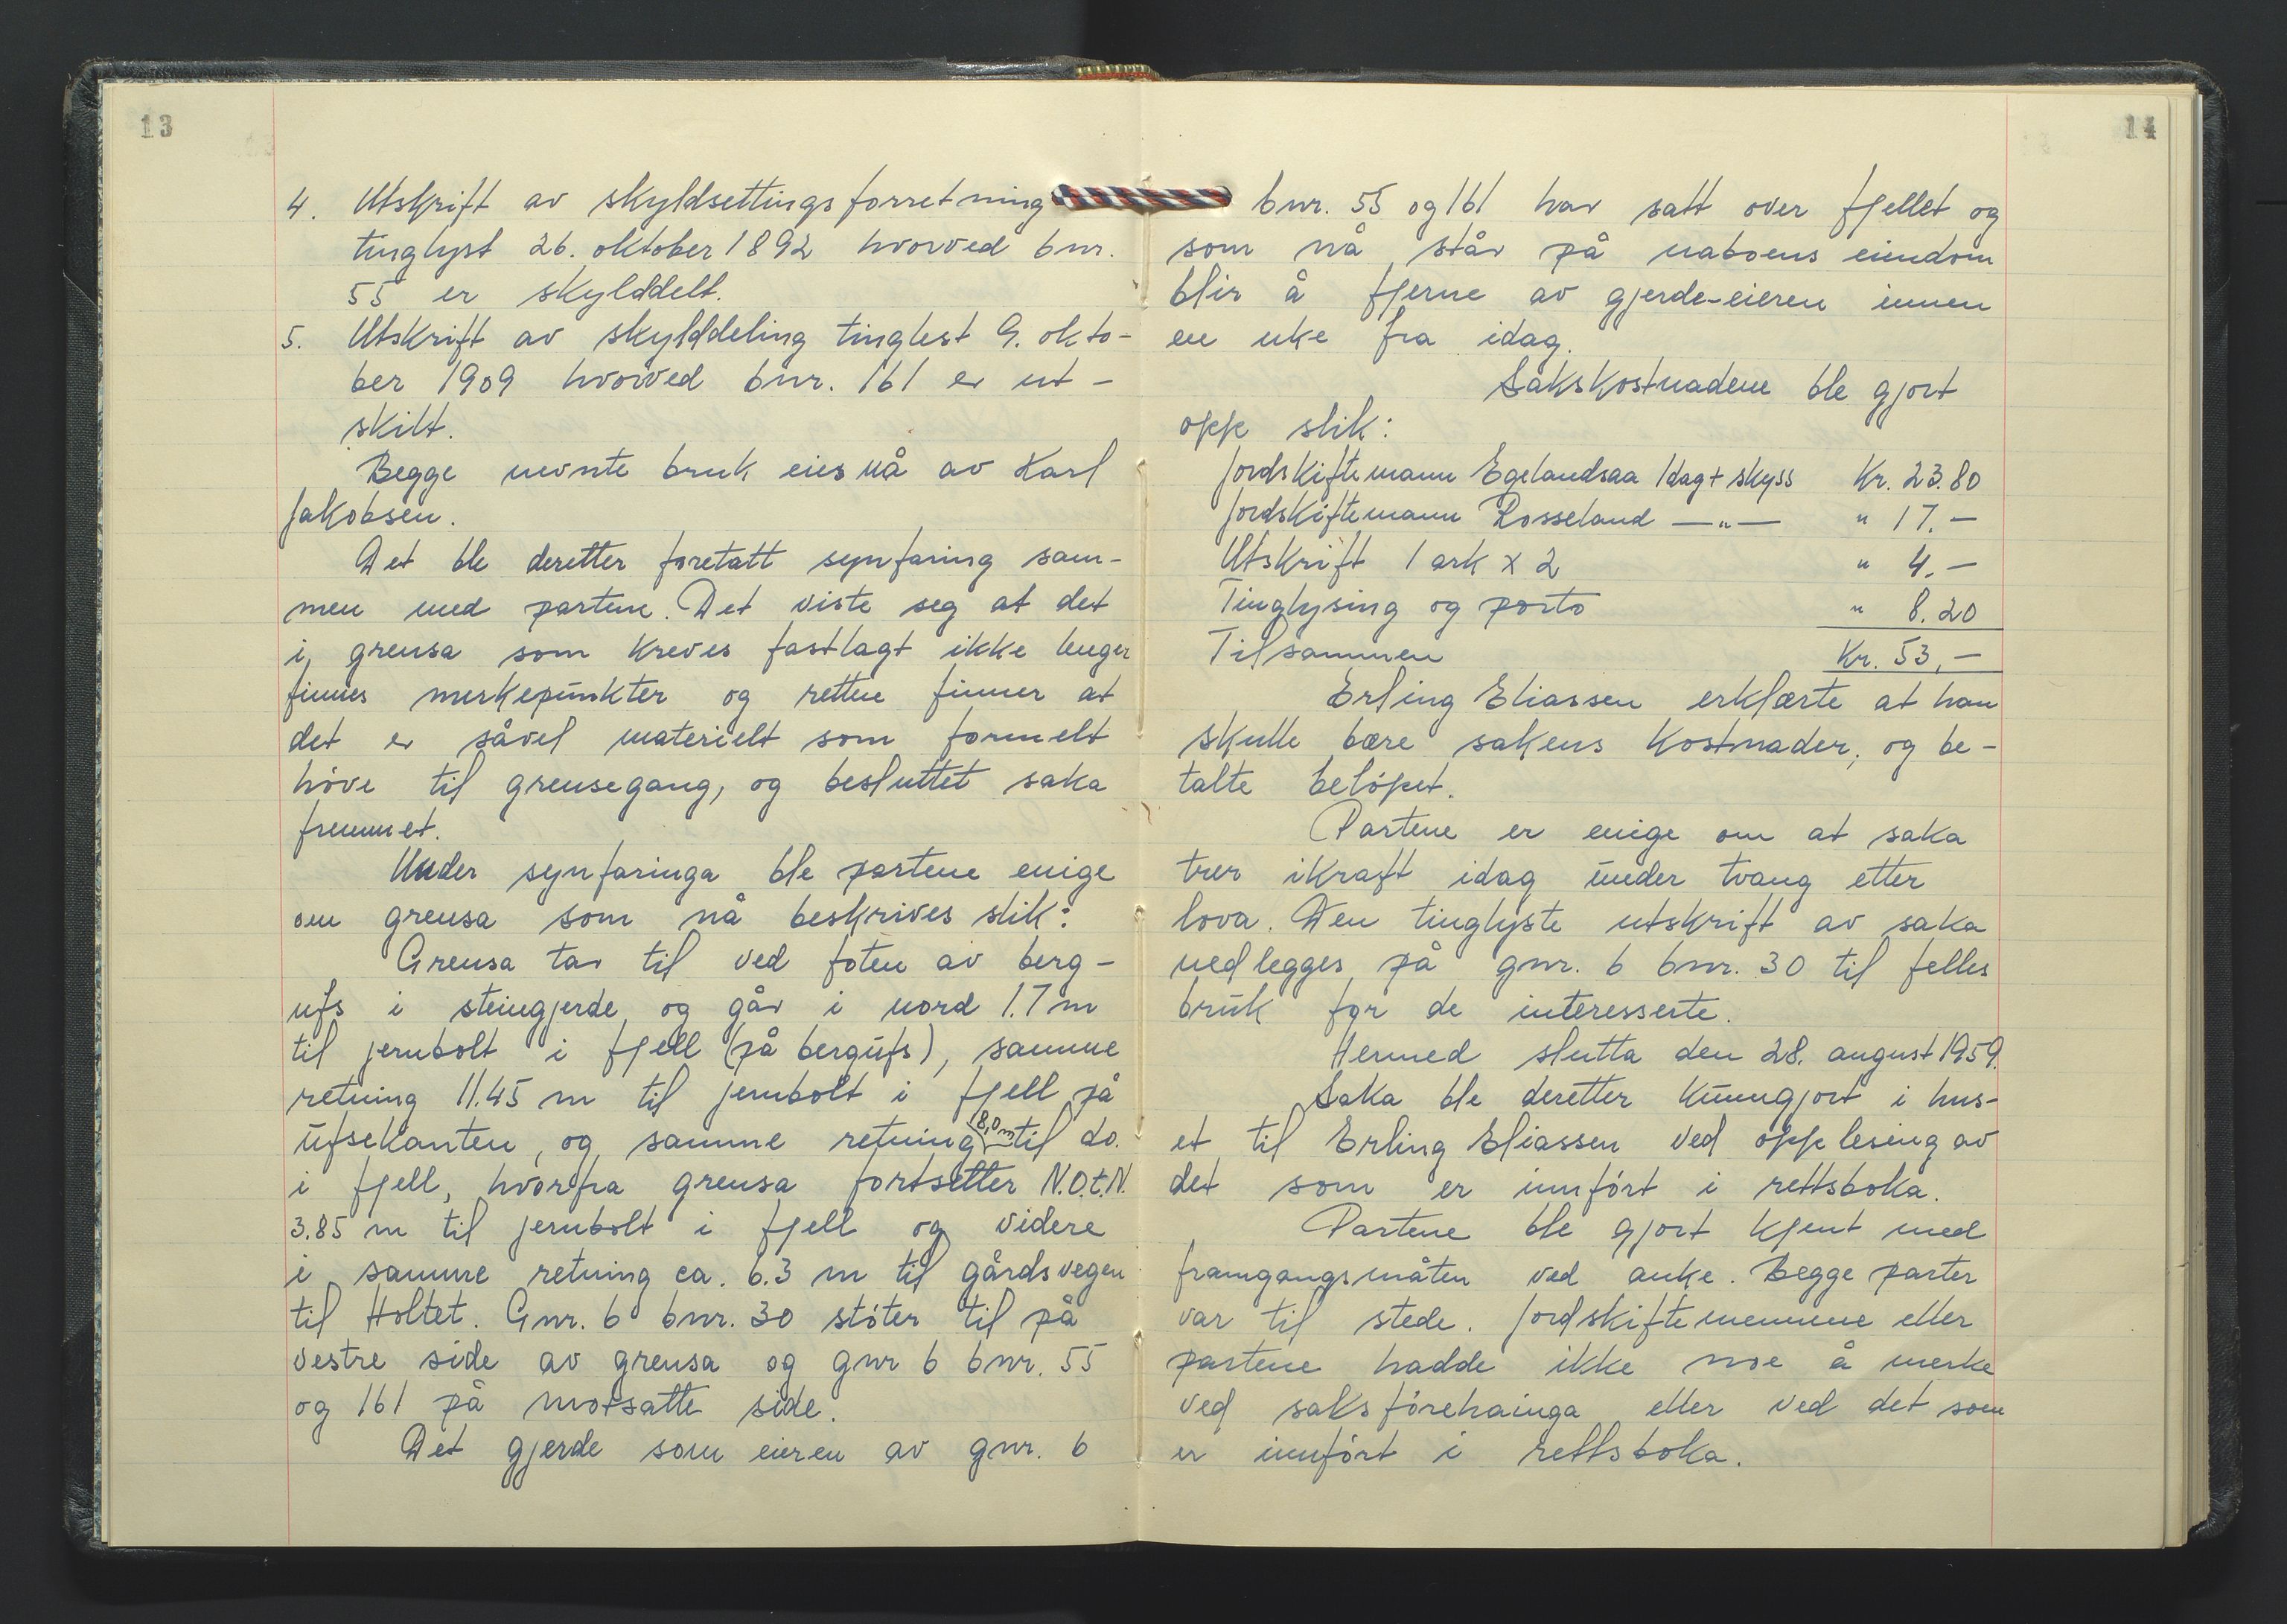 13
4. Utskrift av skyldsettingsforretning
tinglyst 26. oktober 1892 hvorved bnr.
55 er skylddelt.
5. Utskrift av skylddeling tinglest 9. okto-
ber 1909 hvorved bnr. 161 er ut-
skilt.
Begge nevnte bruk eies nå av Karl
Jakobsen.
Det ble deretter foretatt synfaring sam-
men med partene. Det viste seg at det
i grensa som kreves fastlagt ikke lenger
finnes merkepunkter og retten finner at
det er såvel materielt som formelt
høve til grensegang, og besluttet saka
fremmet.
Under synfaringa ble partene enige
om grensa som nå beskrives slik:
Grensa tar til ved foten av berg-
ufs i steingjerde og går i nord 1.7 m
til jernbolt i fjell (på bergufs), samme
retning 11.45 m til jernbolt i fjell på
ufsekanten, og samme retning 8,0 m til do.
i fjell, hvorfra grensa fortsetter N.O.t.N.
3.85 m til jernbolt i fjell og videre
i samme retning ca. 6.3 m til gårdsvegen
til Holtet. Gnr. 6 bnr. 30 støter til på
vestre side av grensa og gnr 6 bnr. 55
og 161 på motsatte side.
Det gjerde som eieren av gnr. 6
14
bnr. 55 og 161 har satt over fjellet og
som nå står på naboens eiendom
blir å fjerne av gjerde-eieren innen
en uke fra idag.
Sakskostnadene ble gjort
opp slik:
Jordskiftemann Egelandsaa 1 dag + skyss Kr. 23.80
Jordskiftemann Rosseland —„— " 17.—
Utskrift 1 ark x 2 " 4.—
Tinglysing og porto " 8.20
Tilsammen Kr. 53,—
Erling Eliassen erklærte at han
skulle bære sakens kostnader, og be-
talte beløpet.
Partene er enige om at saka
trer ikraft idag under tvang etter
lova. Den tinglyste utskrift av saka
nedlegges på gnr. 6 bnr. 30 til felles
bruk for de interesserte.
Hermed slutta den 28. august 1959.
Saka ble deretter kunngjort i hus-
et til Erling Eliassen ved opplesing av
det som er innført i rettsboka.
Partene ble gjort kjent med
framgangsmåten ved anke. Begge parter
var til stede. Jordskiftemennene eller
partene hadde ikke noe å merke
ved saksførehainga eller ved det som
er innført i rettsboka.